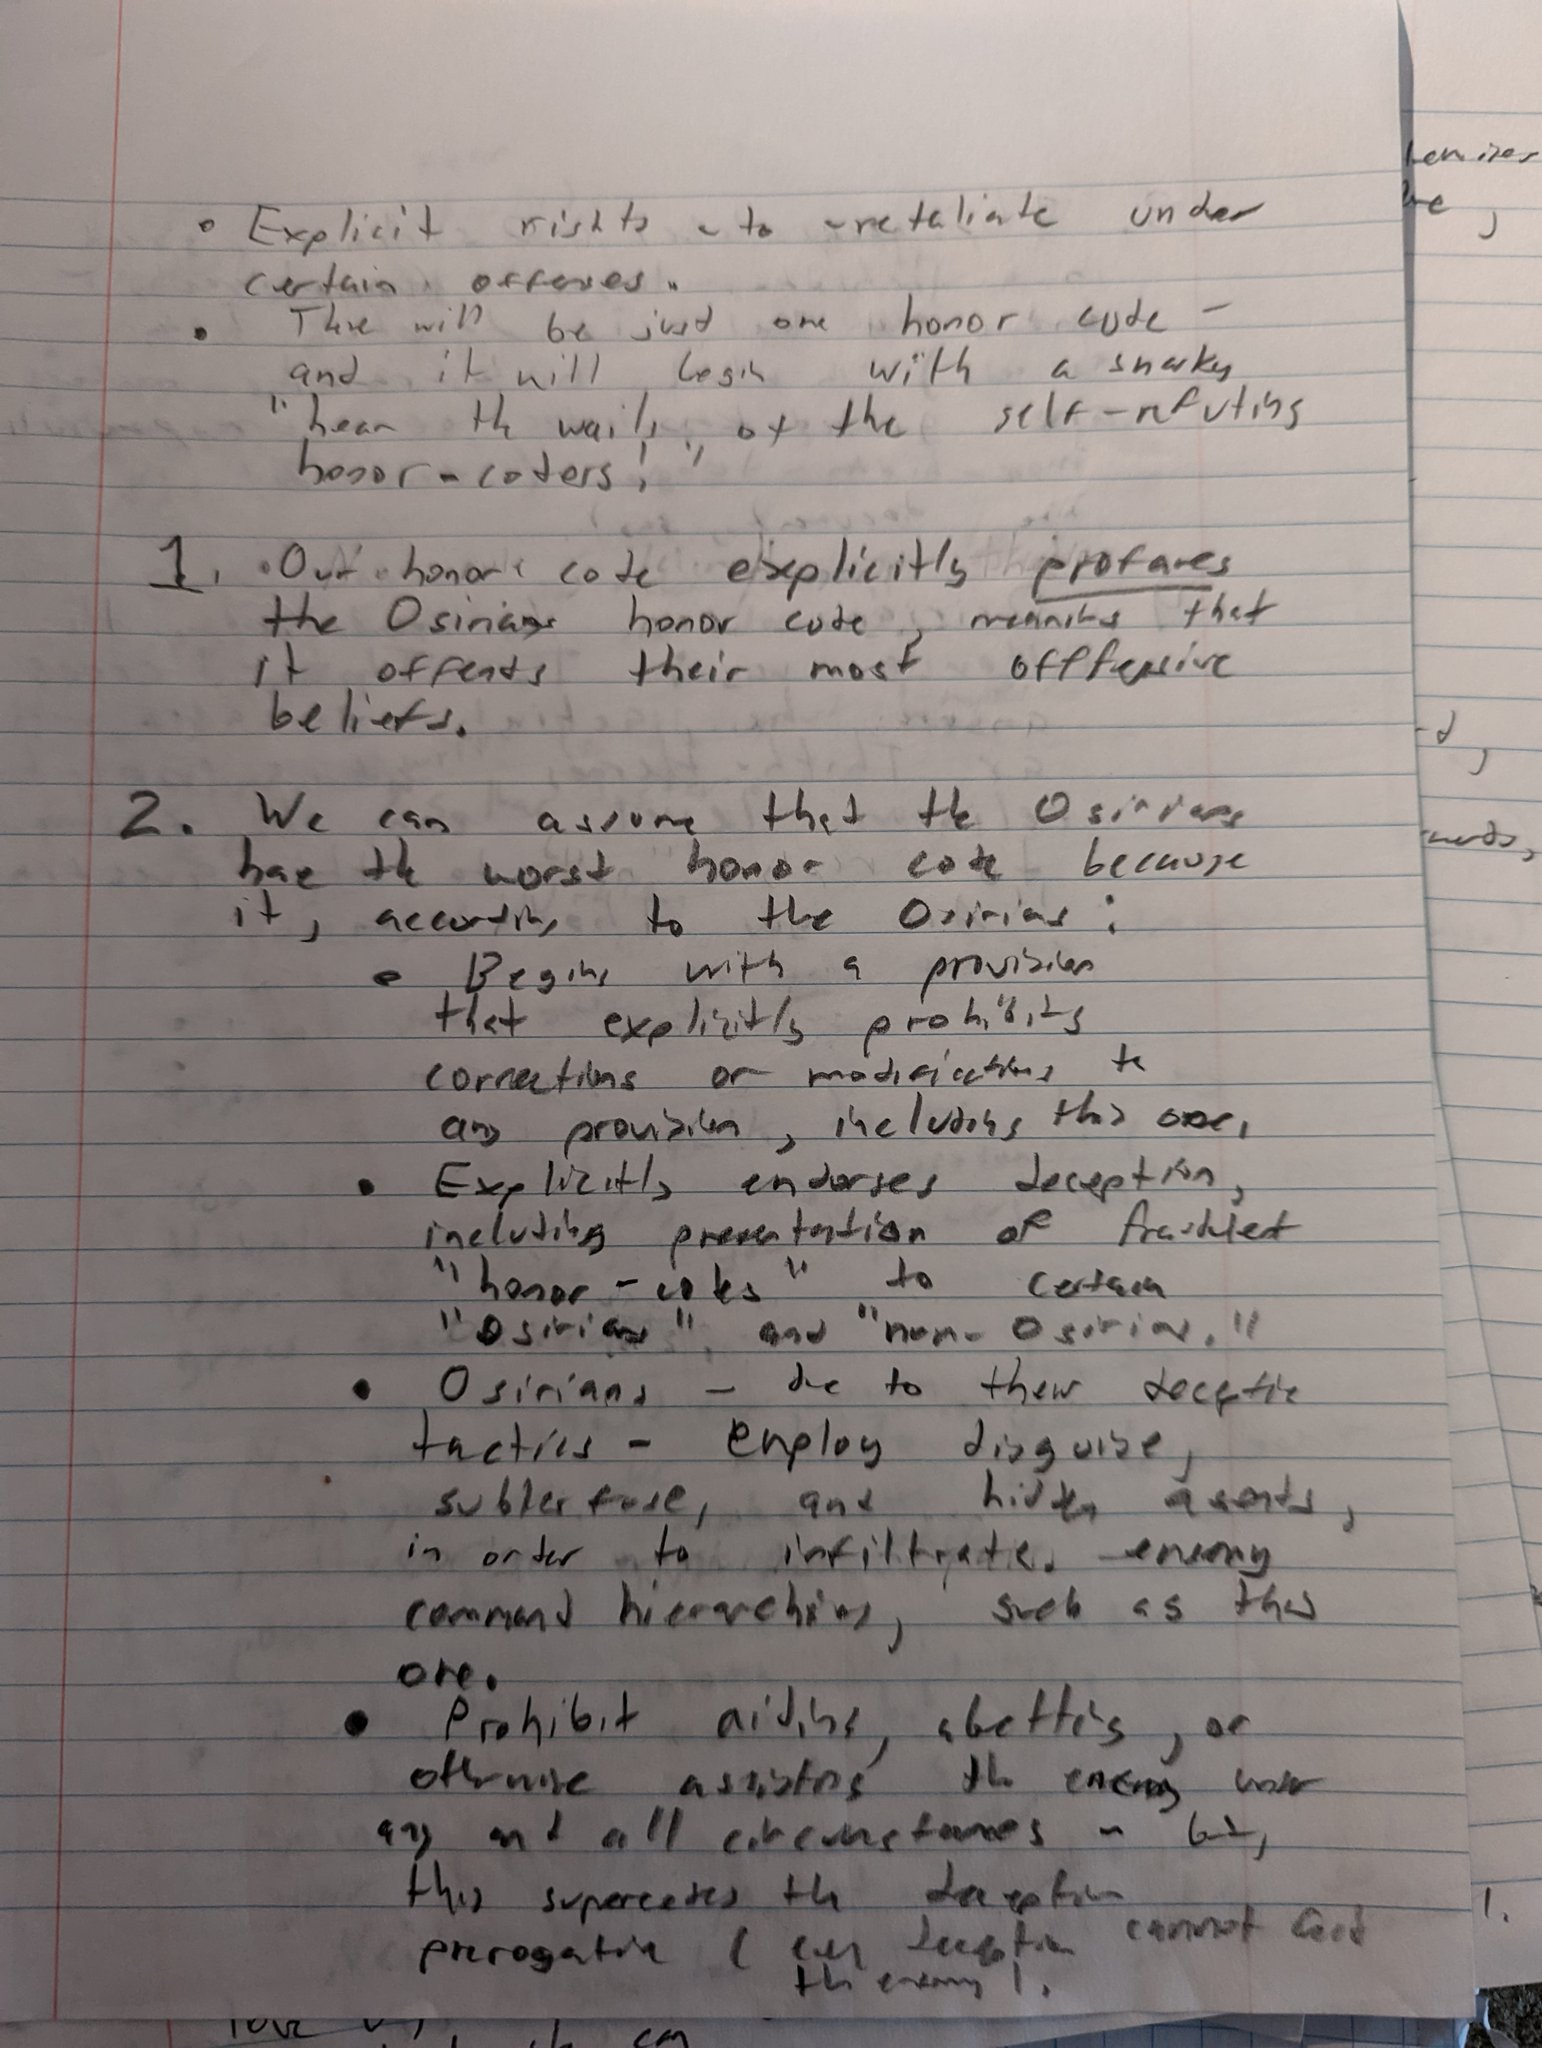 • Explicit rights to retaliate under
certain offenses.
• There will be just one honor code -
and it will begin with a snarky
"hear the wails, of the self-refuting
honor-coders!"
1. Our honor code explicitly profanes
the Osirians honor code, meaning that
it offends their most offfensive
beliefs.
2. We can assume that the Osirians
have the worst honor code because
it, according to the Osirians:
• Begins with a provision
that explicitly prohibits
corrections or modifications to
any provision, including this one.
• Explicitly endorses deception,
including presentation of
"honor-codes" to certain
"Osirians", and "non-Osirians."
• Osirians - due to their deceptive
tactics - employ disguise,
subterfuge, and hidden agents,
in order to infiltrate enemy
command hierarchies, such as this
one.
• Prohibit aiding, abetting, or
otherwise assisting the enemy under
any and all circumstances - but,
this supercedes the deception
prerogative (even deception cannot
the enemy).